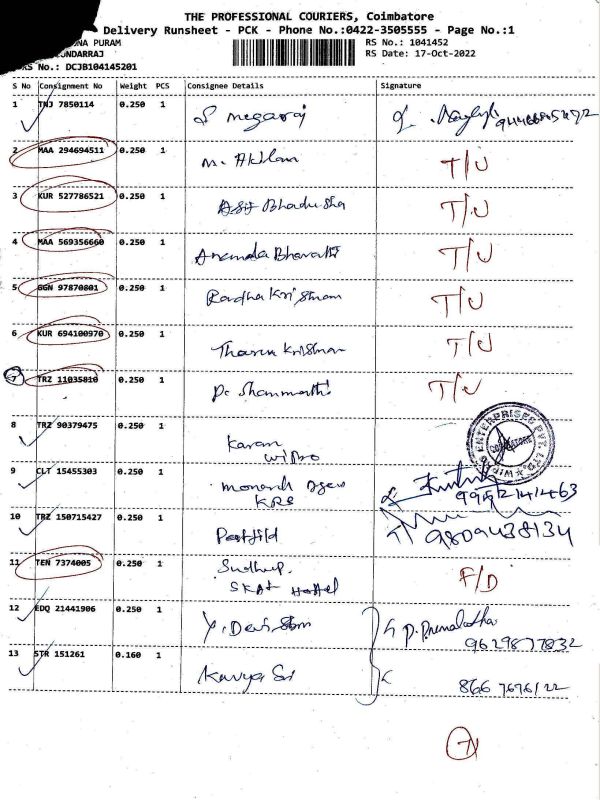 THE PROFESSIONAL COURIERS, Coimbatore
Delivery Runsheet - PCK - Phone No.:0422-3505555 - Page No.:1
PURAM RS No.: 1041452
RS Date: 17-Oct-2022
No.: DCJB104145201
S No Consignment No Weight PCS Consignee Details Signature
1 TNJ 7850114 0.250 1 S megaraj
2 MAA 294694511 0.250 1 T/U
3 KUR 527786521 0.250 1 Asif Bhadusha T/U
4 MAA 569356660 0.250 1 Ananda Bharathi T/U
5 GGN 97870801 0.250 1 Radha Krishnan T/U
6 KUR 694100970 0.250 1 Tharun Krishnan T/U
7 TRZ 11035810 0.250 1 P. Shanmathi T/U
8 TRZ 90379475 0.250 1 Karan
wipro
ENTERPRISES PVT. LTD. WIPRO
COIMBATORE
9 CLT 15455303 0.250 1
KRS
10 TRZ 150715427 0.250 1 9809438134
11 TEN 7374005 0.250 1 F/D
Hostel
12 EDQ 21441906 0.250 1 P. Premalatha
9629877832
13 STR 151261 0.160 1 Kavya Sri
866 7676122
7